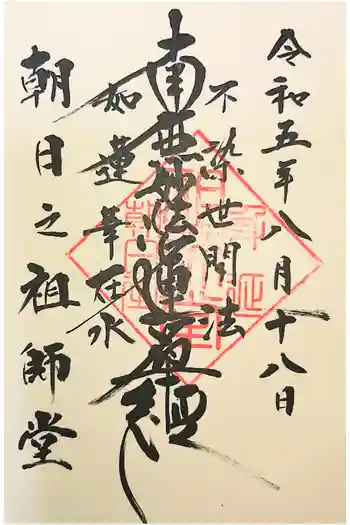 令和五年八月十八日
不染世間法
南無妙法蓮華経
如蓮華在水
朝日之祖師堂